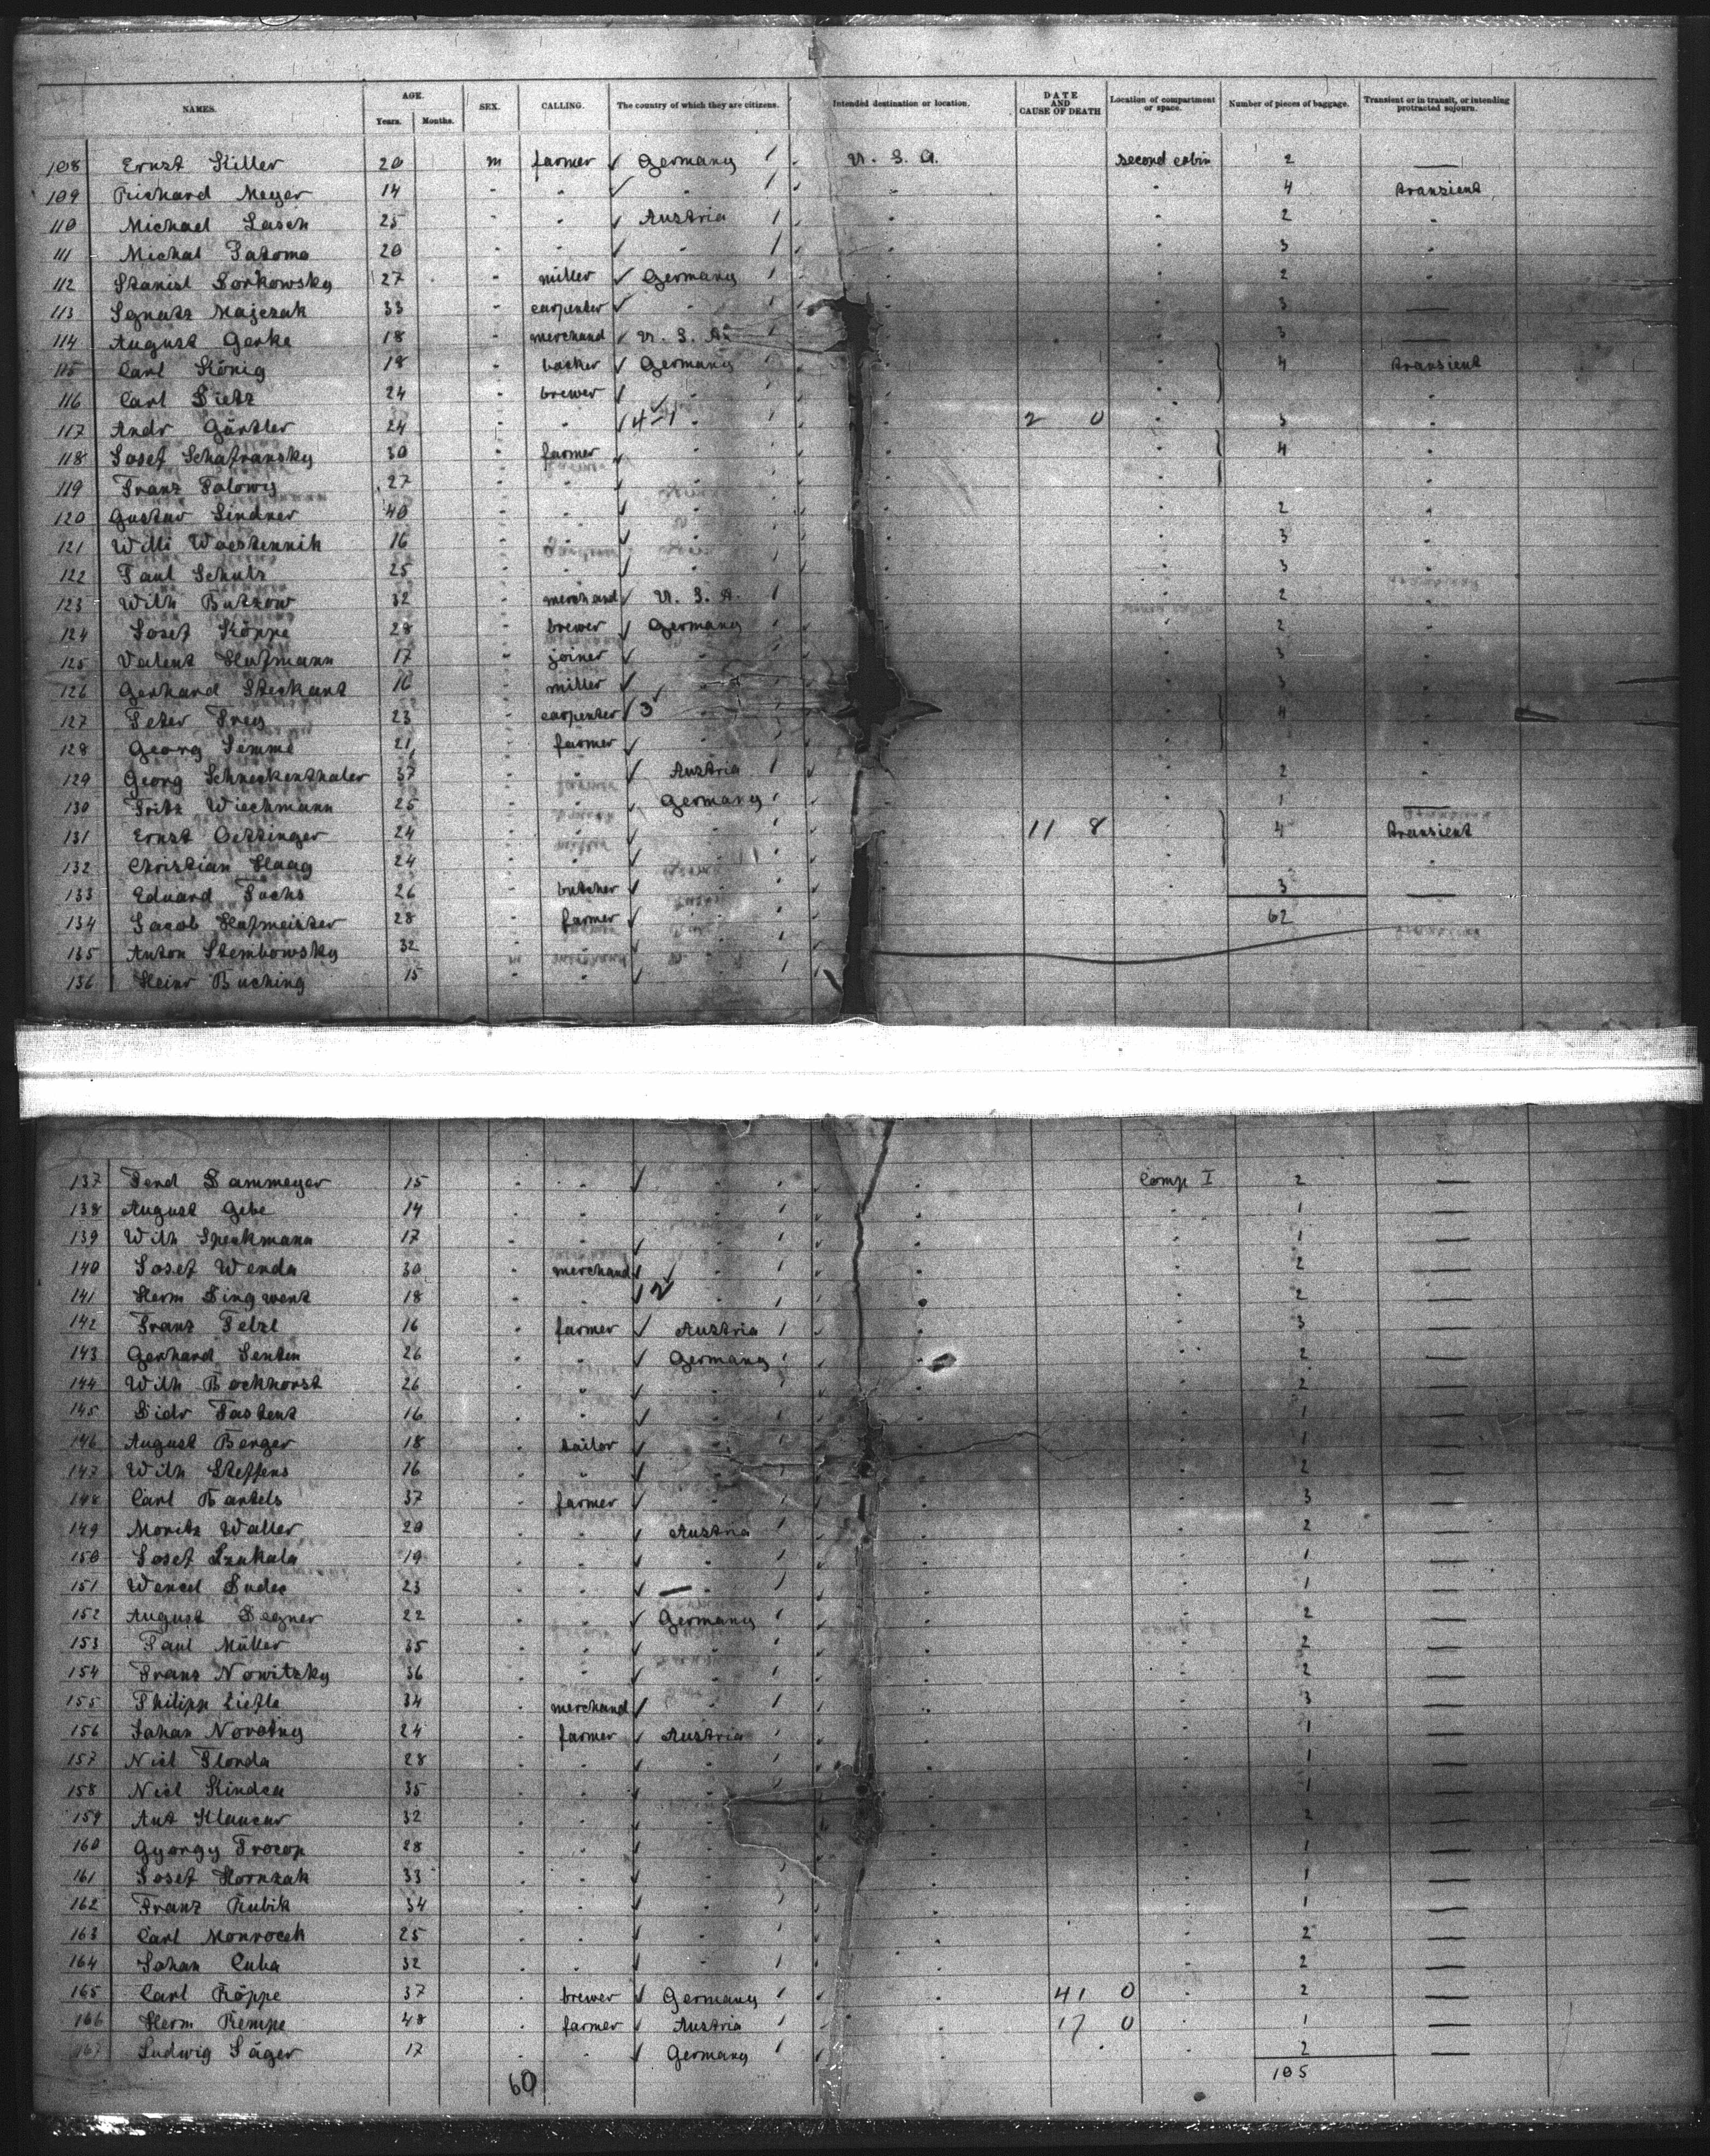 NAMES. AGE. SEX. CALLING. The country of which they are citizens. Intended destination or location. DATE AND CAUSE OF DEATH Location of compartment or space. Number of pieces of baggage. Transient or in transit, or intending protracted sojourn.
Years. Months.
108 Ernst Killer 20 m farmer Germany U. S. A. second cabin 2 —
109 Richard Meyer 14 " " " " " 4 transient
110 Michael Lasch 25 " " Austria " " 2 "
111 Michal 20 " " " " " 3 "
112 Stanisl 27 " miller Germany " " 2 "
113 Ignatz Majczak 33 " carpenter " " " 3 —
114 August Gerke 18 " merchand U. S. A. " " 3 —
115 Carl König 18 " backer Germany " " 4 transient
116 Carl Dietz 24 " brewer " " " "
117 Andr Gärtler 24 " " 4-1 " " 2 0 " 3 "
118 Josef Schafransky 30 " farmer " " " 4 "
119 Franz 27 " " " " " "
120 Gustav Lindner 40 " " " " " 2 "
121 Willi Woestennik 16 " " " " " 3 "
122 Paul Schulz 25 " " " " " 3 "
123 Wilh Butzow 32 " merchand U. S. A. " " 2 "
124 Josef Köppe 28 " brewer Germany " " 2 "
125 Valent Hofmann 17 " joiner " " " 3 "
126 Gerhard Steckant 16 " miller " " " 3 "
127 Peter Frey 23 " carpenter 3 " " " 4 "
128 Georg 21 " farmer " " " "
129 Georg Schneckenthaler 37 " " Austria " " 2 "
130 Fritz Wiechmann 25 " " Germany " " 1 —
131 Ernst Oettinger 24 " " " " 11 8 " 4 transient
132 Christian Haag 24 " " " " " "
133 Eduard Fuchs 26 " butcher " " " 3 —
134 Jacob Hofmeister 28 " farmer " 62
135 Anton Stembowsky 32 " " "
136 Heinr Buching 15 " " "
137 Ferd Dammeyer 15 " " " " Comp I 2 —
138 August Gebe 14 " " " " " 1 —
139 Wilh Speckmann 17 " " " " " 1 —
140 Josef Wenda 30 " merchand " " " 2 —
141 Herm Dingwert 18 " " 12 " " " 2 —
142 Franz Pelzl 16 " farmer Austria " " 3 —
143 Gerhard Senten 26 " " Germany " " 2 —
144 Wilh Bockhorst 26 " " " " " 2 —
145 Didr 16 " " " " " 1 —
146 August Berger 18 " tailor " " " 1 —
147 Wilh Steffens 16 " " " " " 2 —
148 Carl Bartels 37 " farmer " " " 3 —
149 Moritz Waller 20 " " Austria " " 2 —
150 Josef Szukala 19 " " " " " 1 —
151 Wencel Dudec 23 " " — " " " 1 —
152 August Degner 22 " " Germany " " 2 —
153 Paul Müller 35 " " " " " 2 —
154 Franz Nowitzky 36 " " " " " 2 —
155 Philipp 34 " merchand " " " 3 —
156 Johan Novotny 24 " farmer Austria " " 1 —
157 Nicl Florda 28 " " " " " 1 —
158 Nicl Kindea 35 " " " " " 1 —
159 Ant Klancar 32 " " " " " 2 —
160 Gyorgy Procop 28 " " " " " 1 —
161 Josef Hornzak 33 " " " " " 1 —
162 Franz Kubik 34 " " " " " 1 —
163 Carl 25 " " " " " 2 —
164 Johan Cuba 32 " " " " " 2 —
165 Carl Köppe 37 " brewer Germany " 41 0 " 2 —
166 Herm Rempe 48 " farmer Austria " 17 0 " 1 —
167 Ludwig Jäger 17 " " Germany " " 2 —
60 105